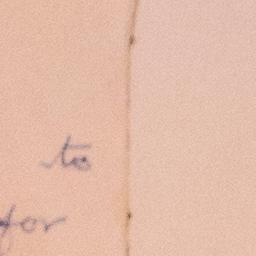 to
for